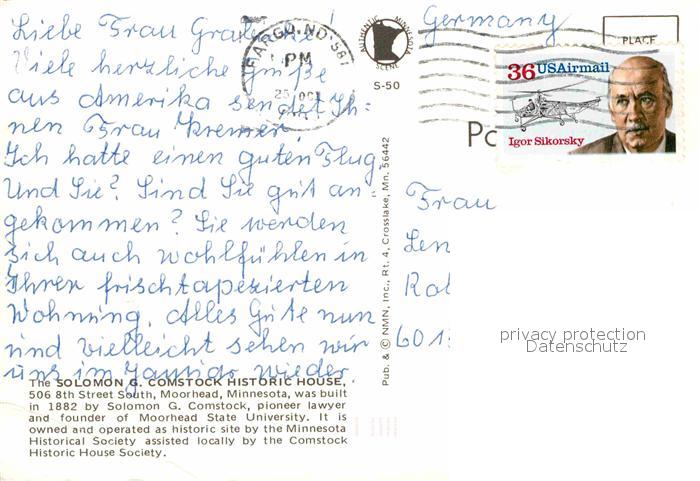 Liebe Frau
Viele herzliche Grüße
aus Amerika sendet Ih-
nen Frau Kremer!
Ich hatte einen guten Flug.
Und Sie? Sind Sie gut an-
gekommen? Sie werden
sich auch wohlfühlen in
Ihrer frischtapezierten
Wohnung. Alles Gute nun
und vielleicht sehen wir
uns im Januar wieder.
The SOLOMON G. COMSTOCK HISTORIC HOUSE,
506 8th Street South, Moorhead, Minnesota, was built
in 1882 by Solomon G. Comstock, pioneer lawyer
and founder of Moorhead State University. It is
owned and operated as historic site by the Minnesota
Historical Society assisted locally by the Comstock
Historic House Society.
FARGO, ND 581
PM
25 OCT
AUTHENTIC MINNESOTA
SCENE
S-50
Pub. & © NMN, Inc., Rt. 4, Crosslake, Mn. 56442
Germany
PLACE
36 USAirmail
Igor Sikorsky
Po
Frau
Len
Rol
601
privacy protection
Datenschutz